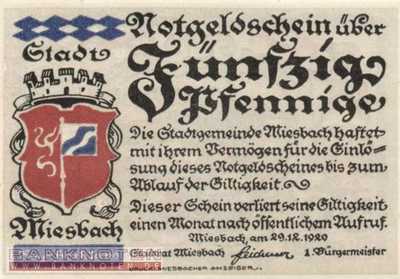 Notgeldschein über
Stadt
Fünfzig
Pfennige
Die Stadtgemeinde Miesbach haftet
mit ihrem Vermögen für die Einlö-
sung dieses Notgeldscheines bis zum
Ablauf der Giltigkeit.
Dieser Schein verliert seine Gültigkeit
einen Monat nach öffentlichem Aufruf.
Miesbach
Miesbach, am 29.12.1920
Stadtrat Miesbach 1. Bürgermeister
DRUCK: MIESBACHER ANZEIGER.
BANKNOT
WWW.BANKNOTE